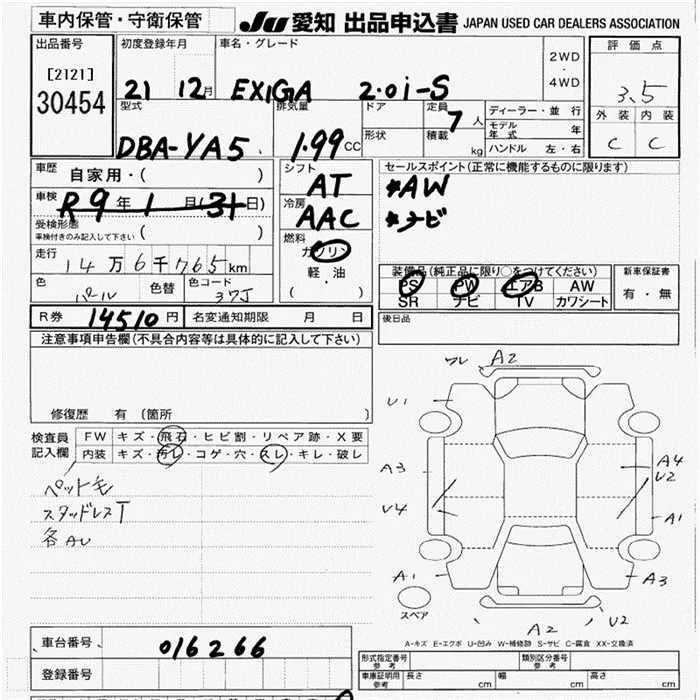 車内保管・守衛保管 JU 愛知 出品申込書 JAPAN USED CAR DEALERS ASSOCIATION
出品番号 初度登録年月 車名・グレード 2WD ・ 4WD 評価点
[2121] 30454 21 12月 EXIGA 2.0i-S 3.5
型式 排気量 ドア 定員 7人 ディーラー・並行 外装 内装
DBA-YA5 1.99CC 形状 積載 kg モデル年式 年 C C
ハンドル 左・右
車歴 自家用・( ) シフト AT セールスポイント(正常に機能するものに限ります)
車検 R9年1月(31日) 冷房 AAC *AW
受検形態 ( ) *ナビ
車検付きのみ記入して下さい
燃料 ガソリン
走行 14万6千765km 軽・油
( )
色 パール 色替 色コード 37J
装備品(純正品に限り○をつけてください) 新車保証書
PS PW エアB AW 有・無
SR ナビ TV カワシート
R券 14510円 名変通知期限 月 日 後日品
注意事項申告欄(不具合内容等は具体的に記入して下さい)
修復歴 有 (箇所 )
検査員記入欄 FW キズ・飛石・ヒビ割・リペア跡・X要
内装 キズ・汚レ・コゲ・穴・スレ・キレ・破レ
ペット毛
スタッドレスT
各AU
ワレ A2
U1
A3 A4
U2
U4 A1
A1 A3
スペア
A2 U2
A-キズ E-エクボ U-凹み W-補修跡 S-サビ C-腐食 XX-交換済
車台番号 016266
登録番号
形式指定番号 参考 類別区分番号 参考
車庫証明用 参考 長さ cm 幅 cm 高さ cm